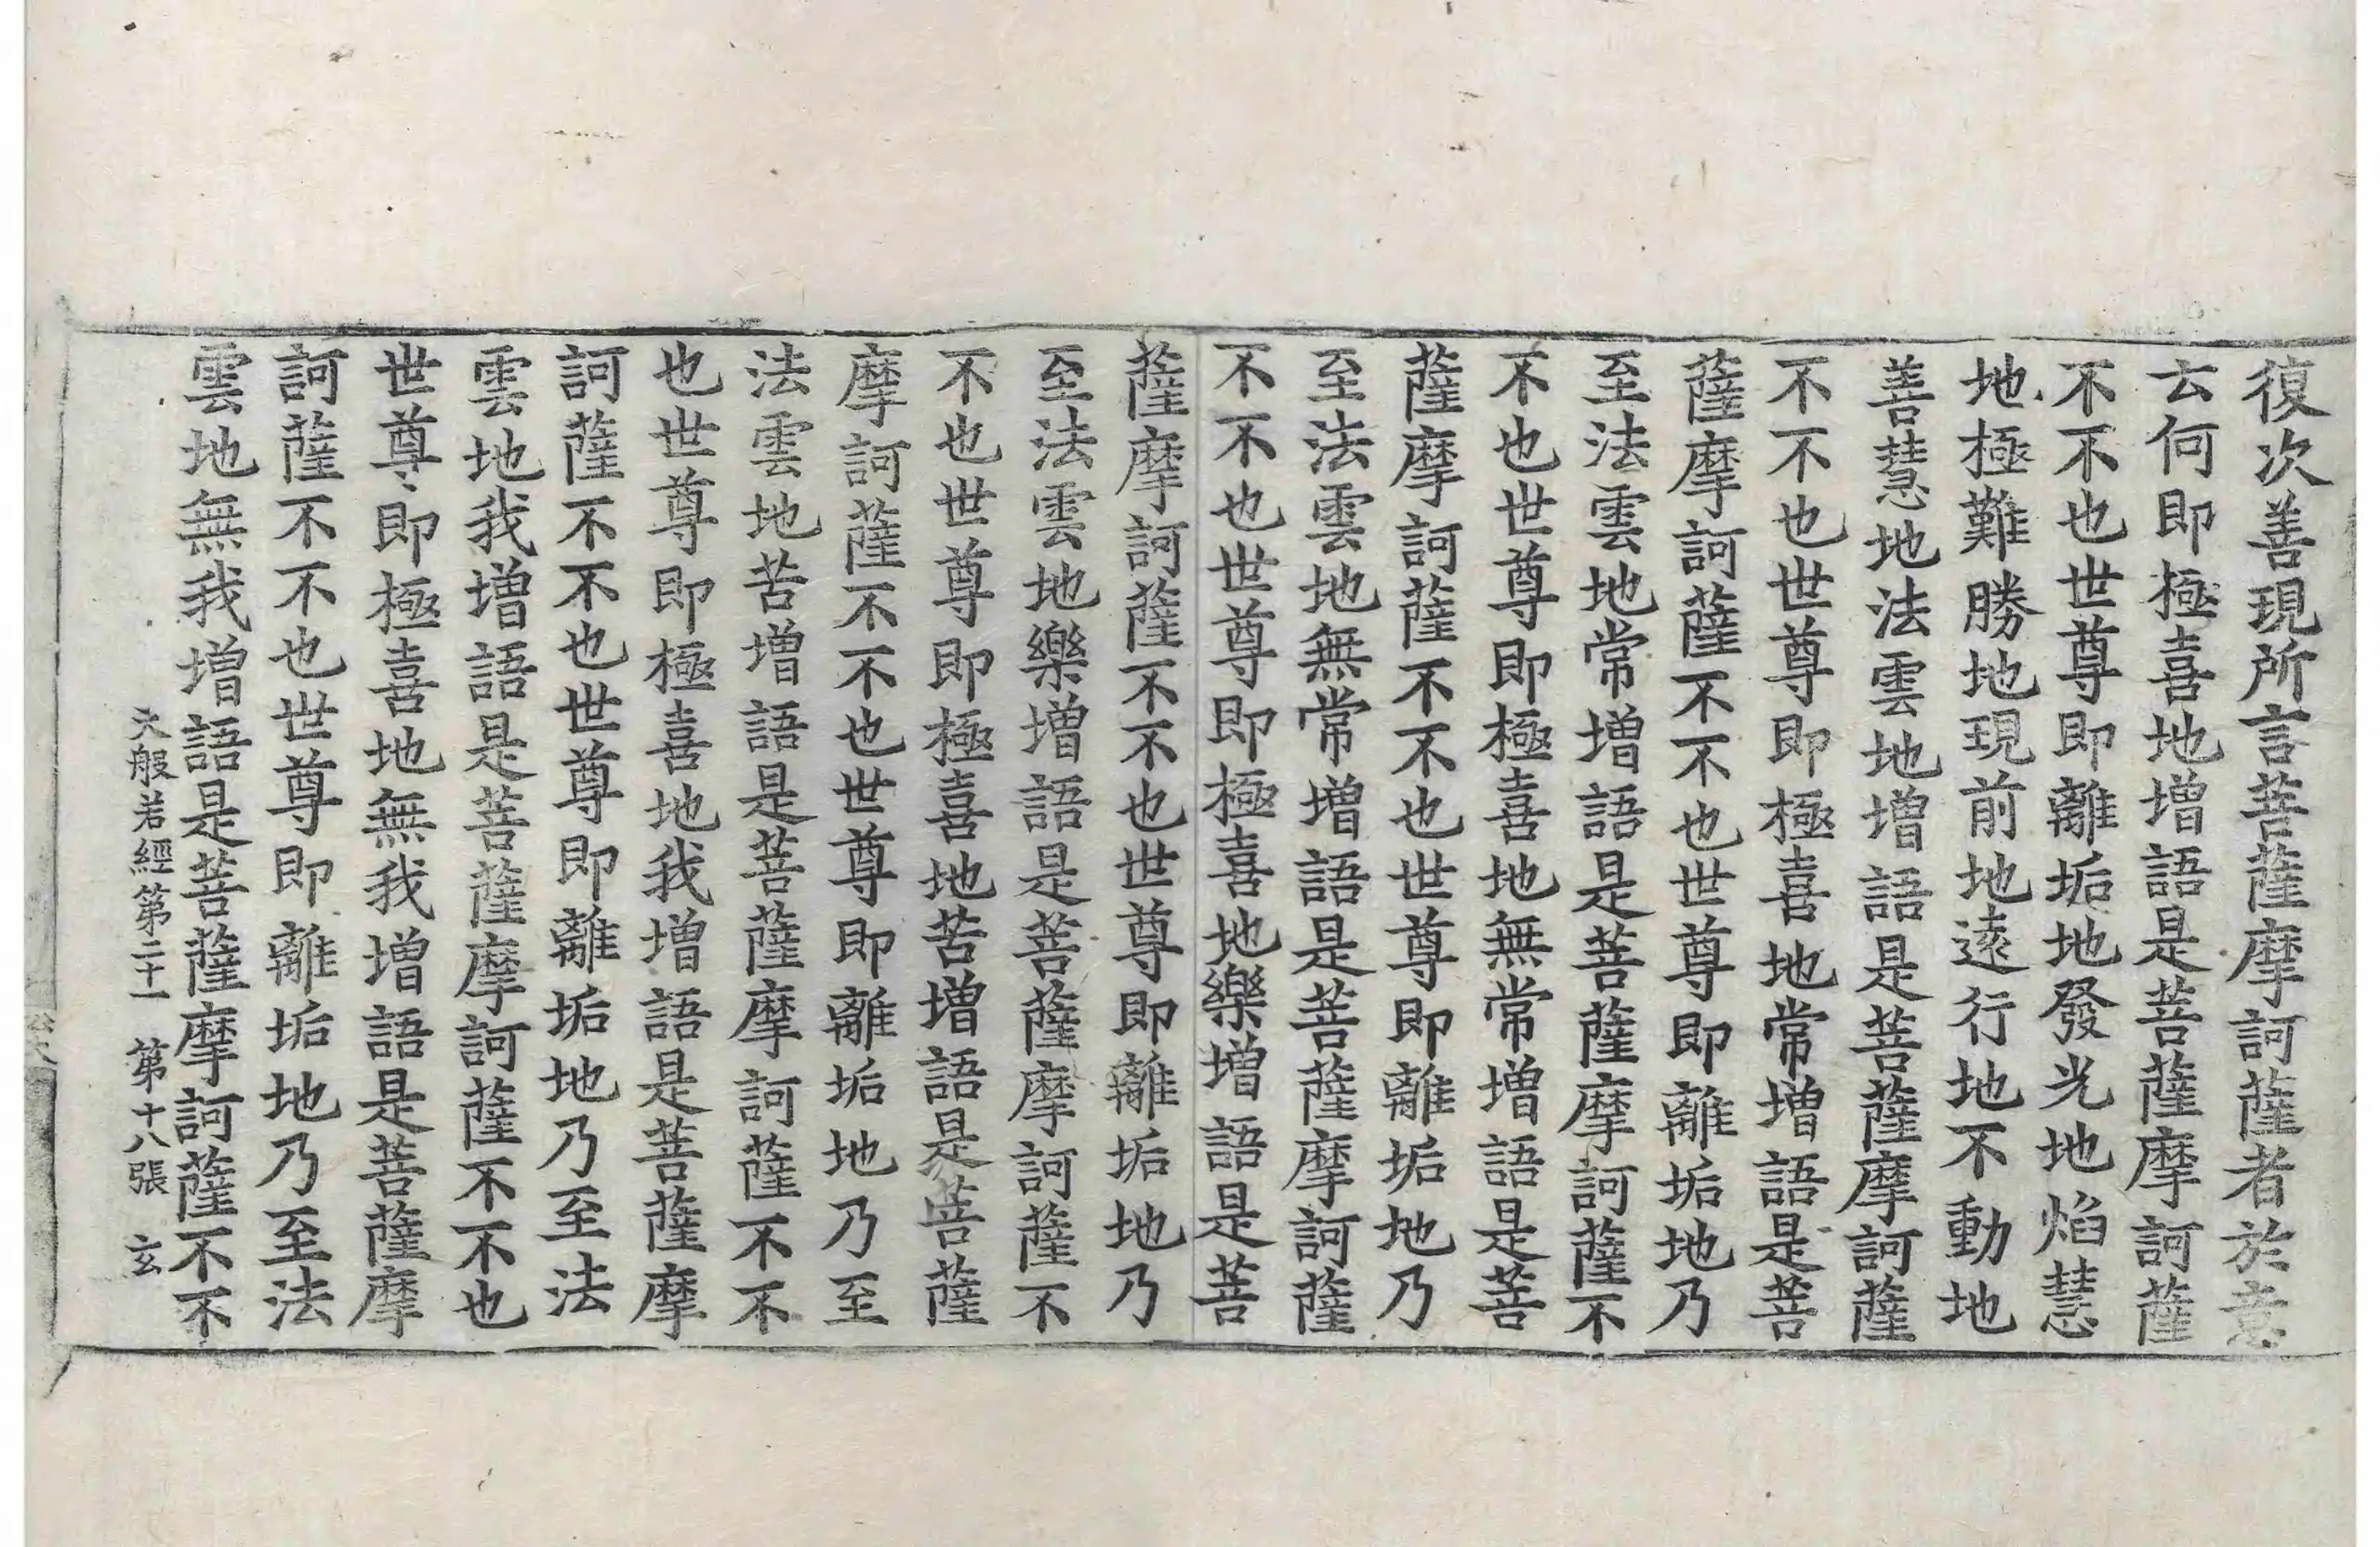 復次善現所言菩薩摩訶薩者於意
云何即極喜地增語是菩薩摩訶薩
不不也世尊即離垢地發光地焰慧
地極難勝地現前地遠行地不動地
善慧地法雲地增語是菩薩摩訶薩
不不也世尊即極喜地常增語是菩
薩摩訶薩不不也世尊即離垢地乃
至法雲地常增語是菩薩摩訶薩不
不也世尊即極喜地無常增語是菩
薩摩訶薩不不也世尊即離垢地乃
至法雲地無常增語是菩薩摩訶薩
不不也世尊即極喜地樂增語是菩
薩摩訶薩不不也世尊即離垢地乃
至法雲地樂增語是菩薩摩訶薩不
不也世尊即極喜地苦增語是菩薩
摩訶薩不不也世尊即離垢地乃至
法雲地苦增語是菩薩摩訶薩不不
也世尊即極喜地我增語是菩薩摩
訶薩不不也世尊即離垢地乃至法
雲地我增語是菩薩摩訶薩不不也
世尊即極喜地無我增語是菩薩摩
訶薩不不也世尊即離垢地乃至法
雲地無我增語是菩薩摩訶薩不不
大般若經第二十一 第十八張 玄